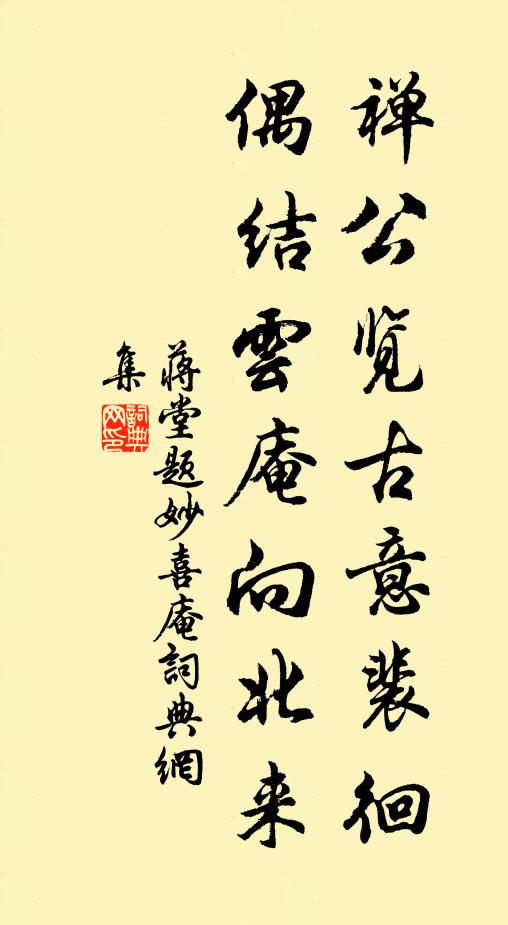 禅公览古意裴徊
偶结雲庵向北来
蒋堂题妙喜庵詞典網
集
詞典网印